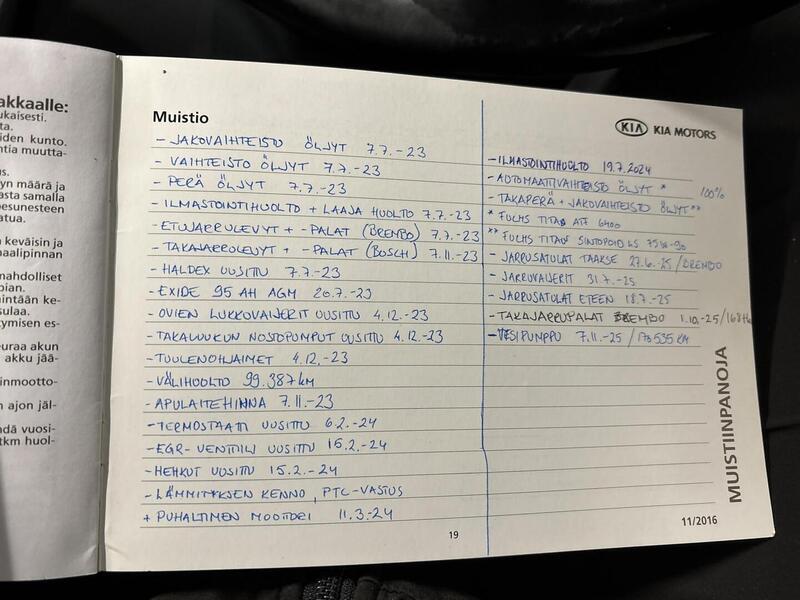 akkaalle:
ukaisesti.
ta.
iden kunto.
ntia muutta-
us.
yn määrä ja
asta samalla
pesunesteen
atua.
n keväisin ja
naalipinnan
nahdolliset
pian.
nintään ke-
sulaa.
tymisen es-
euraa akun
akku jää-
inmootto-
n ajon jäl-
ndä vuosi-
tkm huol-
Muistio
- JAKOVAIHTEISTO ÖLJYT 7.7.-23
- VAIHTEISTO ÖLJYT 7.7.-23
- PERÄ ÖLJYT 7.7.-23
- ILMASTOINTIHUOLTO + LAAJA HUOLTO 7.7.-23
- ETUJARRULEVYT + -PALAT (BREMBO) 7.7.-23
- TAKAJARRULEVYT + -PALAT (BOSCH) 7.11.-23
- HALDEX UUSITTU 7.7.-23
- EXIDE 95 AH AGM 20.7.-23
- OVIEN LUKKOVAIJERIT UUSITTU 4.12.-23
- TAKALUUKUN NOSTOPUMPUT UUSITTU 4.12.-23
- TUULENOHJAIMET 4.12.-23
- VÄLIHUOLTO 99.387 km
- APULAITEHINNA 7.11-23
- TERMOSTAATTI UUSITTU 6.2.-24
- EGR-VENTTIILI UUSITTU 15.2.-24
- HEHKUT UUSITTU 15.2.-24
- LÄMMITYKSEN KENNO, PTC-VASTUS
+ PUHALTIMEN MOOTTORI 11.3-24
19
KIA KIA MOTORS
- ILMASTOINTIHUOLTO 19.7.2024
- AUTOMAATTIVAIHTEISTO ÖLJYT * 100%
- TAKAPERÄ + JAKOVAIHTEISTO ÖLJYT **
* FUCHS TITAN ATF 6400
** FUCHS TITAN SINTOPOID LS 75W-90
- JARRUSATULAT TAAKSE 27.6.25 / BREMBO
- JARRUVAIJERIT 31.7.-25
- JARRUSATULAT ETEEN 18.7.-25
- TAKAJARRUPALAT BREMBO 1.10.-25/168tk
- VESIPUMPPU 7.11.-25 / 170535 KM
MUISTIINPANOJA
11/2016